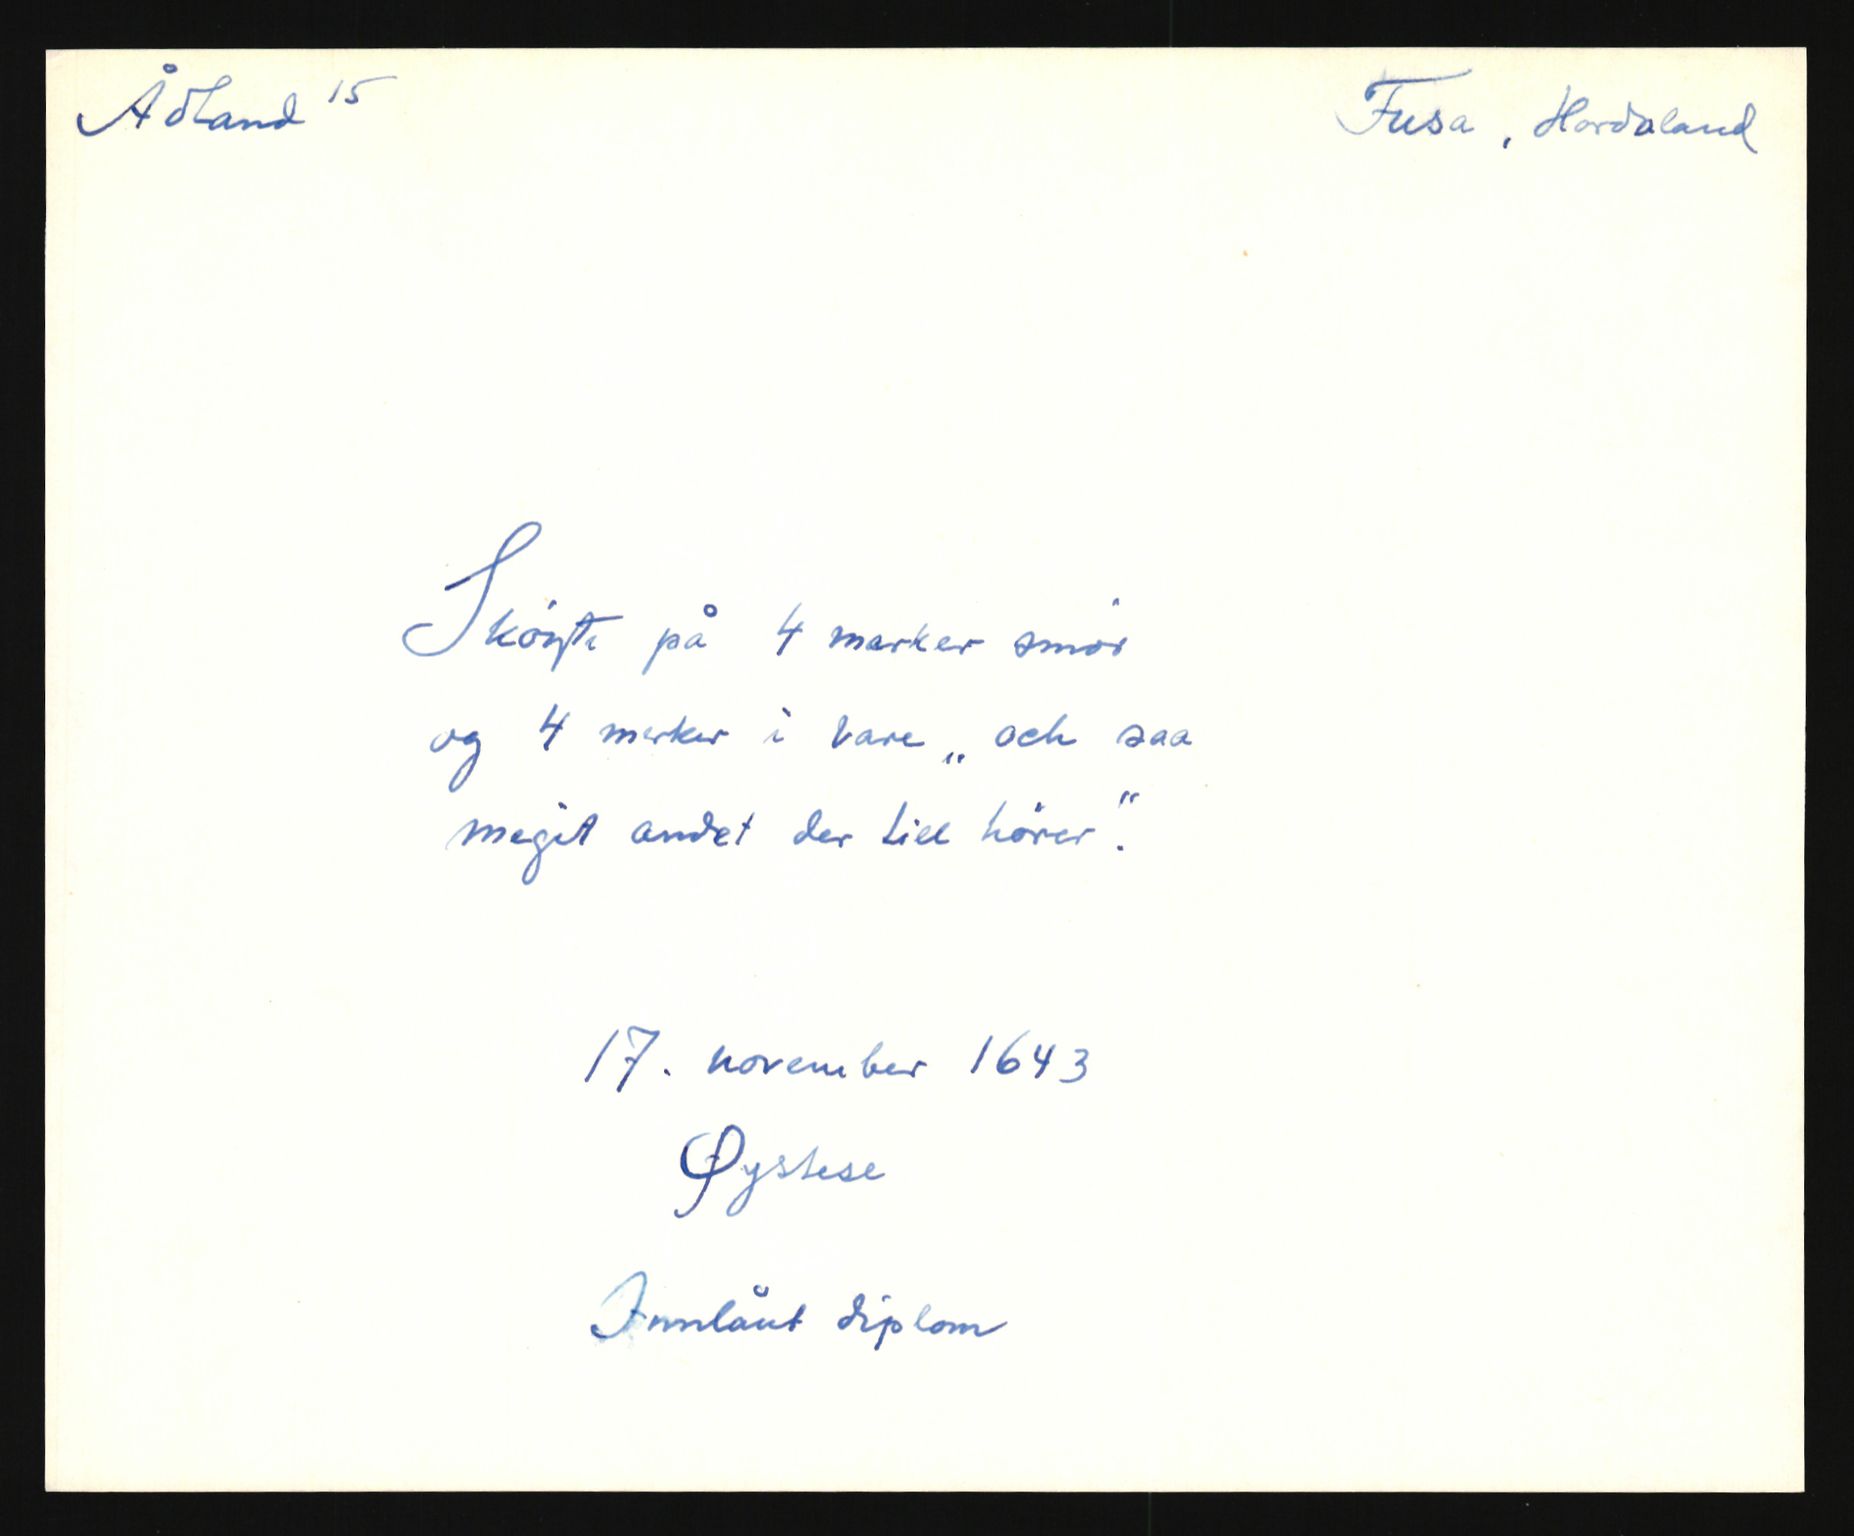 Ådland 15
Fusa, Hordaland
Skóyti på 4 marker smór
og 4 merker i vare „och saa
megit andet der till hörer".
17. november 1643
Øystese
Innlånt diplom